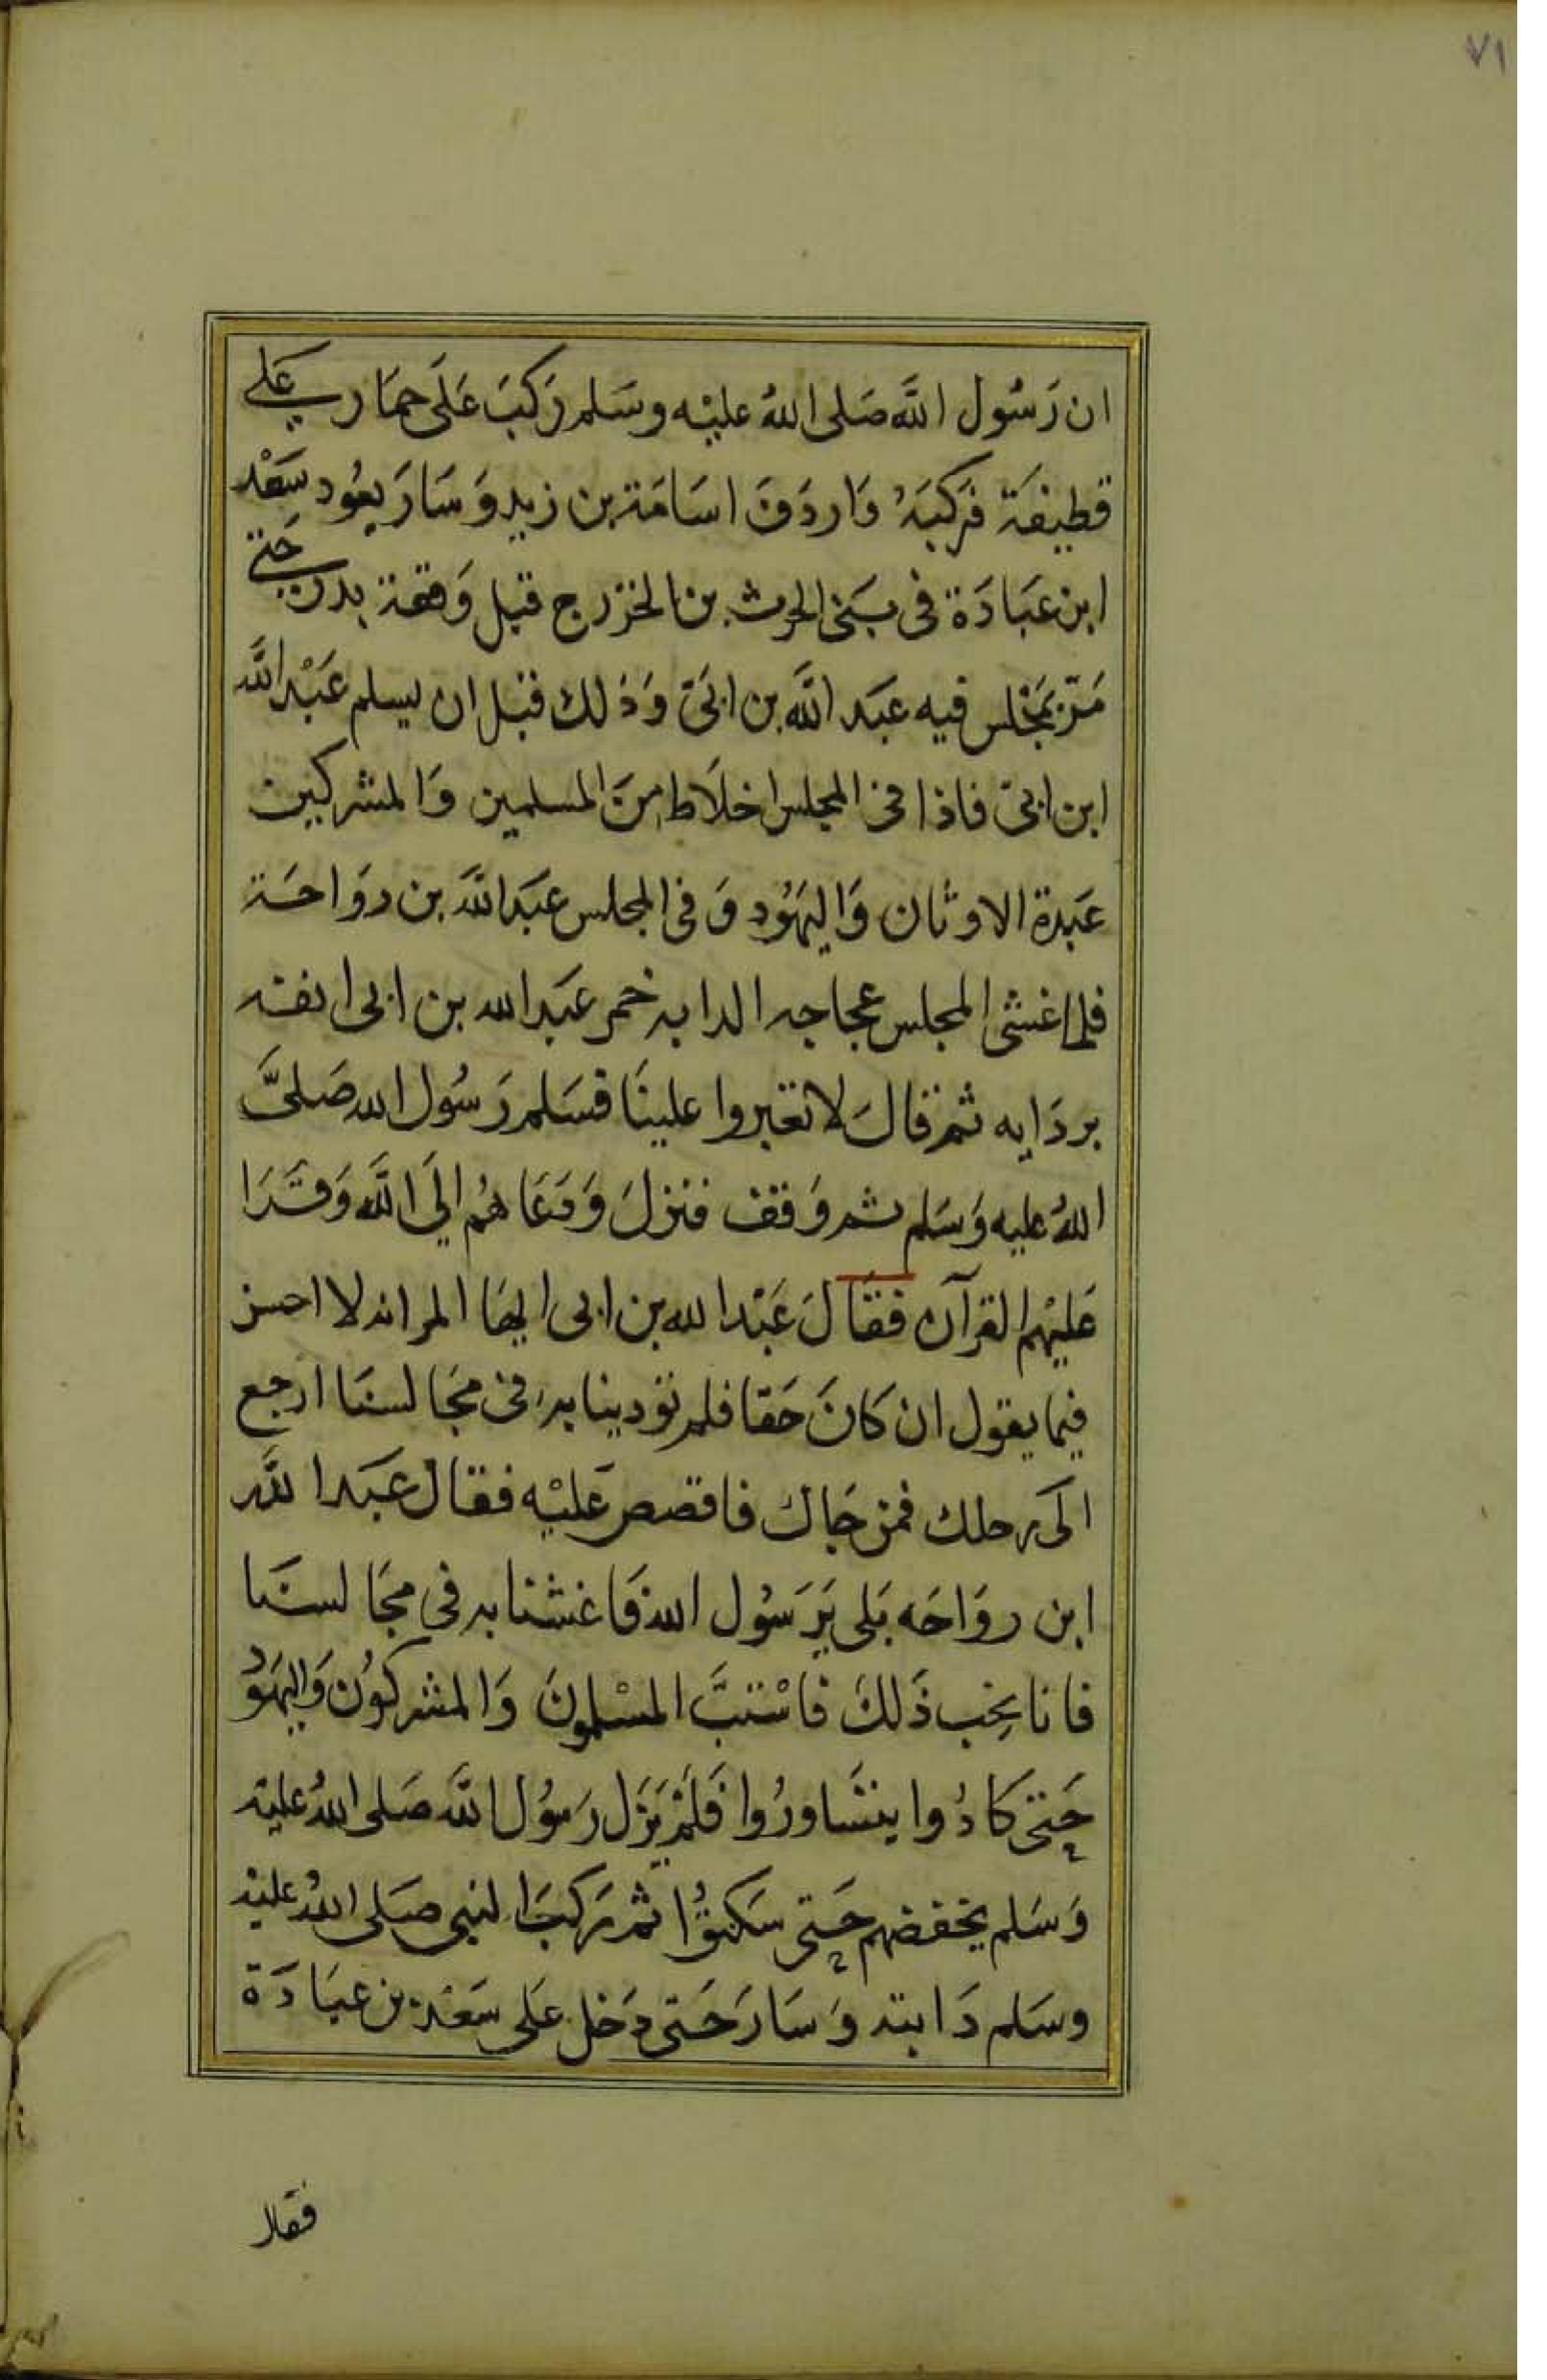 ٧١
ان رَسُول اللَّه صَلى اللهُ عليْه وسَلم رَكبَ عَلَى حمَار عَلى
قطيفَة فرَكبَهُ وَاردَفَ اسَامَة بن زيد وَسَارَ يعُود سَعْد
ابن عبَادَة فى بَنى الحرث بن الخزرج قبل وَقعة بدر حَتى
مَرّ بمَجْلس فيه عبَد اللَّه بن ابَىّ وَذلك قبل ان يسلم عَبْد اللَّه
ابن ابىّ فاذا فى المجلس اخلَاط منَ المسلمين وَالمشركين
عَبدة الاوثان وَاليهُود وَفى المجلس عبَد اللَّه بن روَاحَة
فلما غشى المجلس عجاجه الدابه خمر عبَد الله بن ابى انفه
بردَايه ثم قالَ لا تغبروا علينَا فسَلم رَسُول الله صَلىَّ
اللهُ عليه وَسَلم ثم وَقف فنزلَ وَدَعَاهُم الَى اللَّه وَقَرَا
عَليْهم القرآن فقَالَ عَبْد الله بن ابى ايهَا المر انه لا احسن
فيما يقول ان كانَ حَقا فلم تودينا به فى مجَالسنَا ارجع
الَى رحلك فمن جَاك فاقصص عَليْه فقال عبَد اللَّه
ابن روَاحَه بَلى يَرَسُول الله فَاغشنا به فى مجَالسنَا
فانا نحِب ذَلكَ فاسْتبَّ المسْلمونَ وَالمشركوُن وَاليهَوُد
حَتى كادُوا يتشَاورُوا فَلمْ يَزَل رَسُول اللَّه صَلى اللهُ عليْه
وَسَلم يخفضهم حَتى سَكنوُا ثم رَكبَ النبى صَلى اللهُ عليْه
وسَلم دَابته وَسَارَ حَتى دَخل عَلى سَعْد بن عبَادَة
فقال